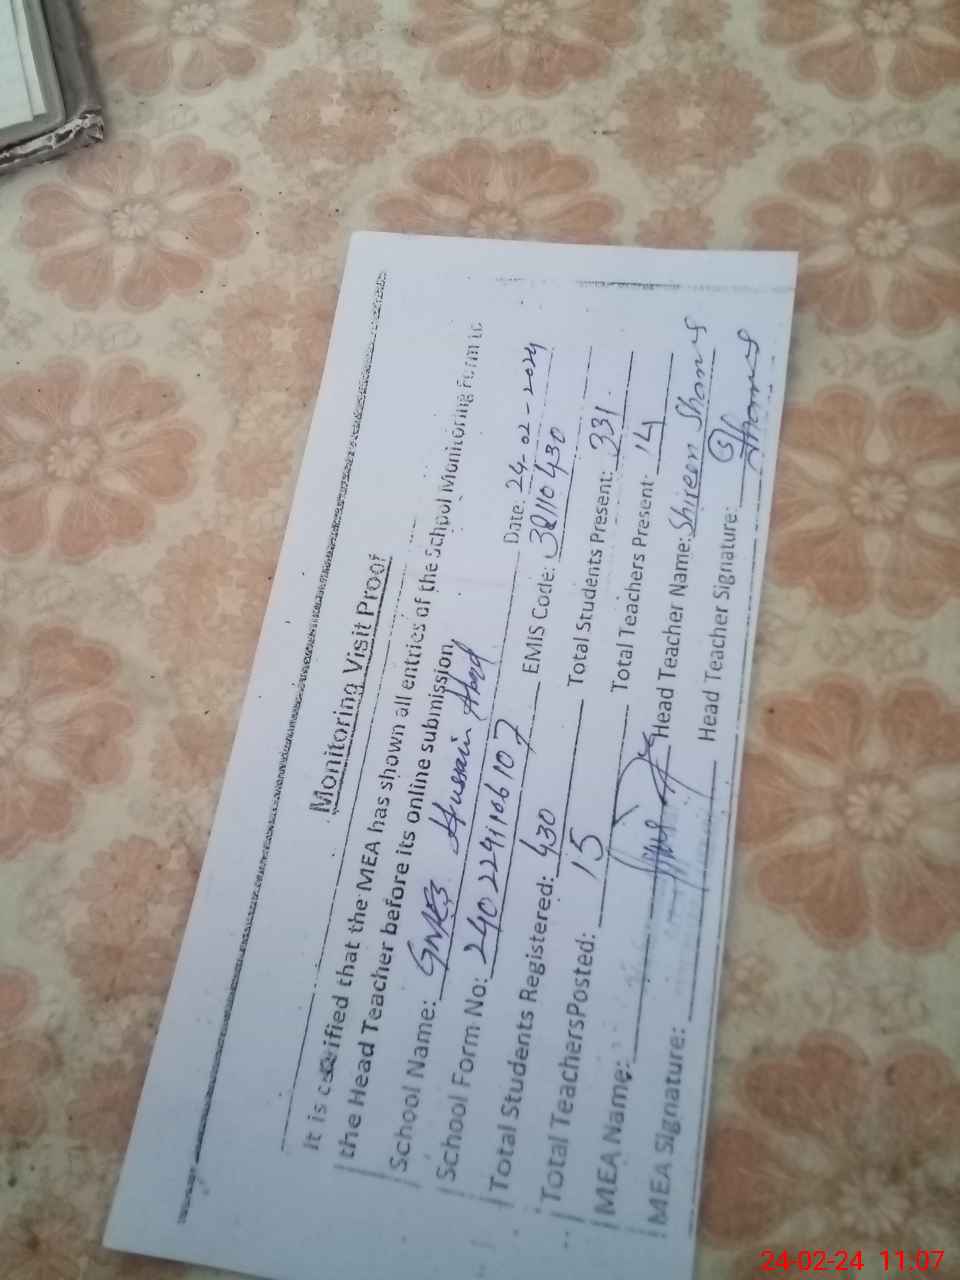 Monitoring Visit Proof
It is certified that the MEA has shown all entries of the School Monitoring Form to
the Head Teacher before its online submission.
School Name: Hussain Abad Date: 24-02-2024
School Form No: EMIS Code:
Total Students Registered: 430 Total Students Present: 331
Total Teachers Posted: 15 Total Teachers Present: 14
MEA Name: Head Teacher Name: Shireen Shams
MEA Signature: Head Teacher Signature: Shams
24-02-24 11:07